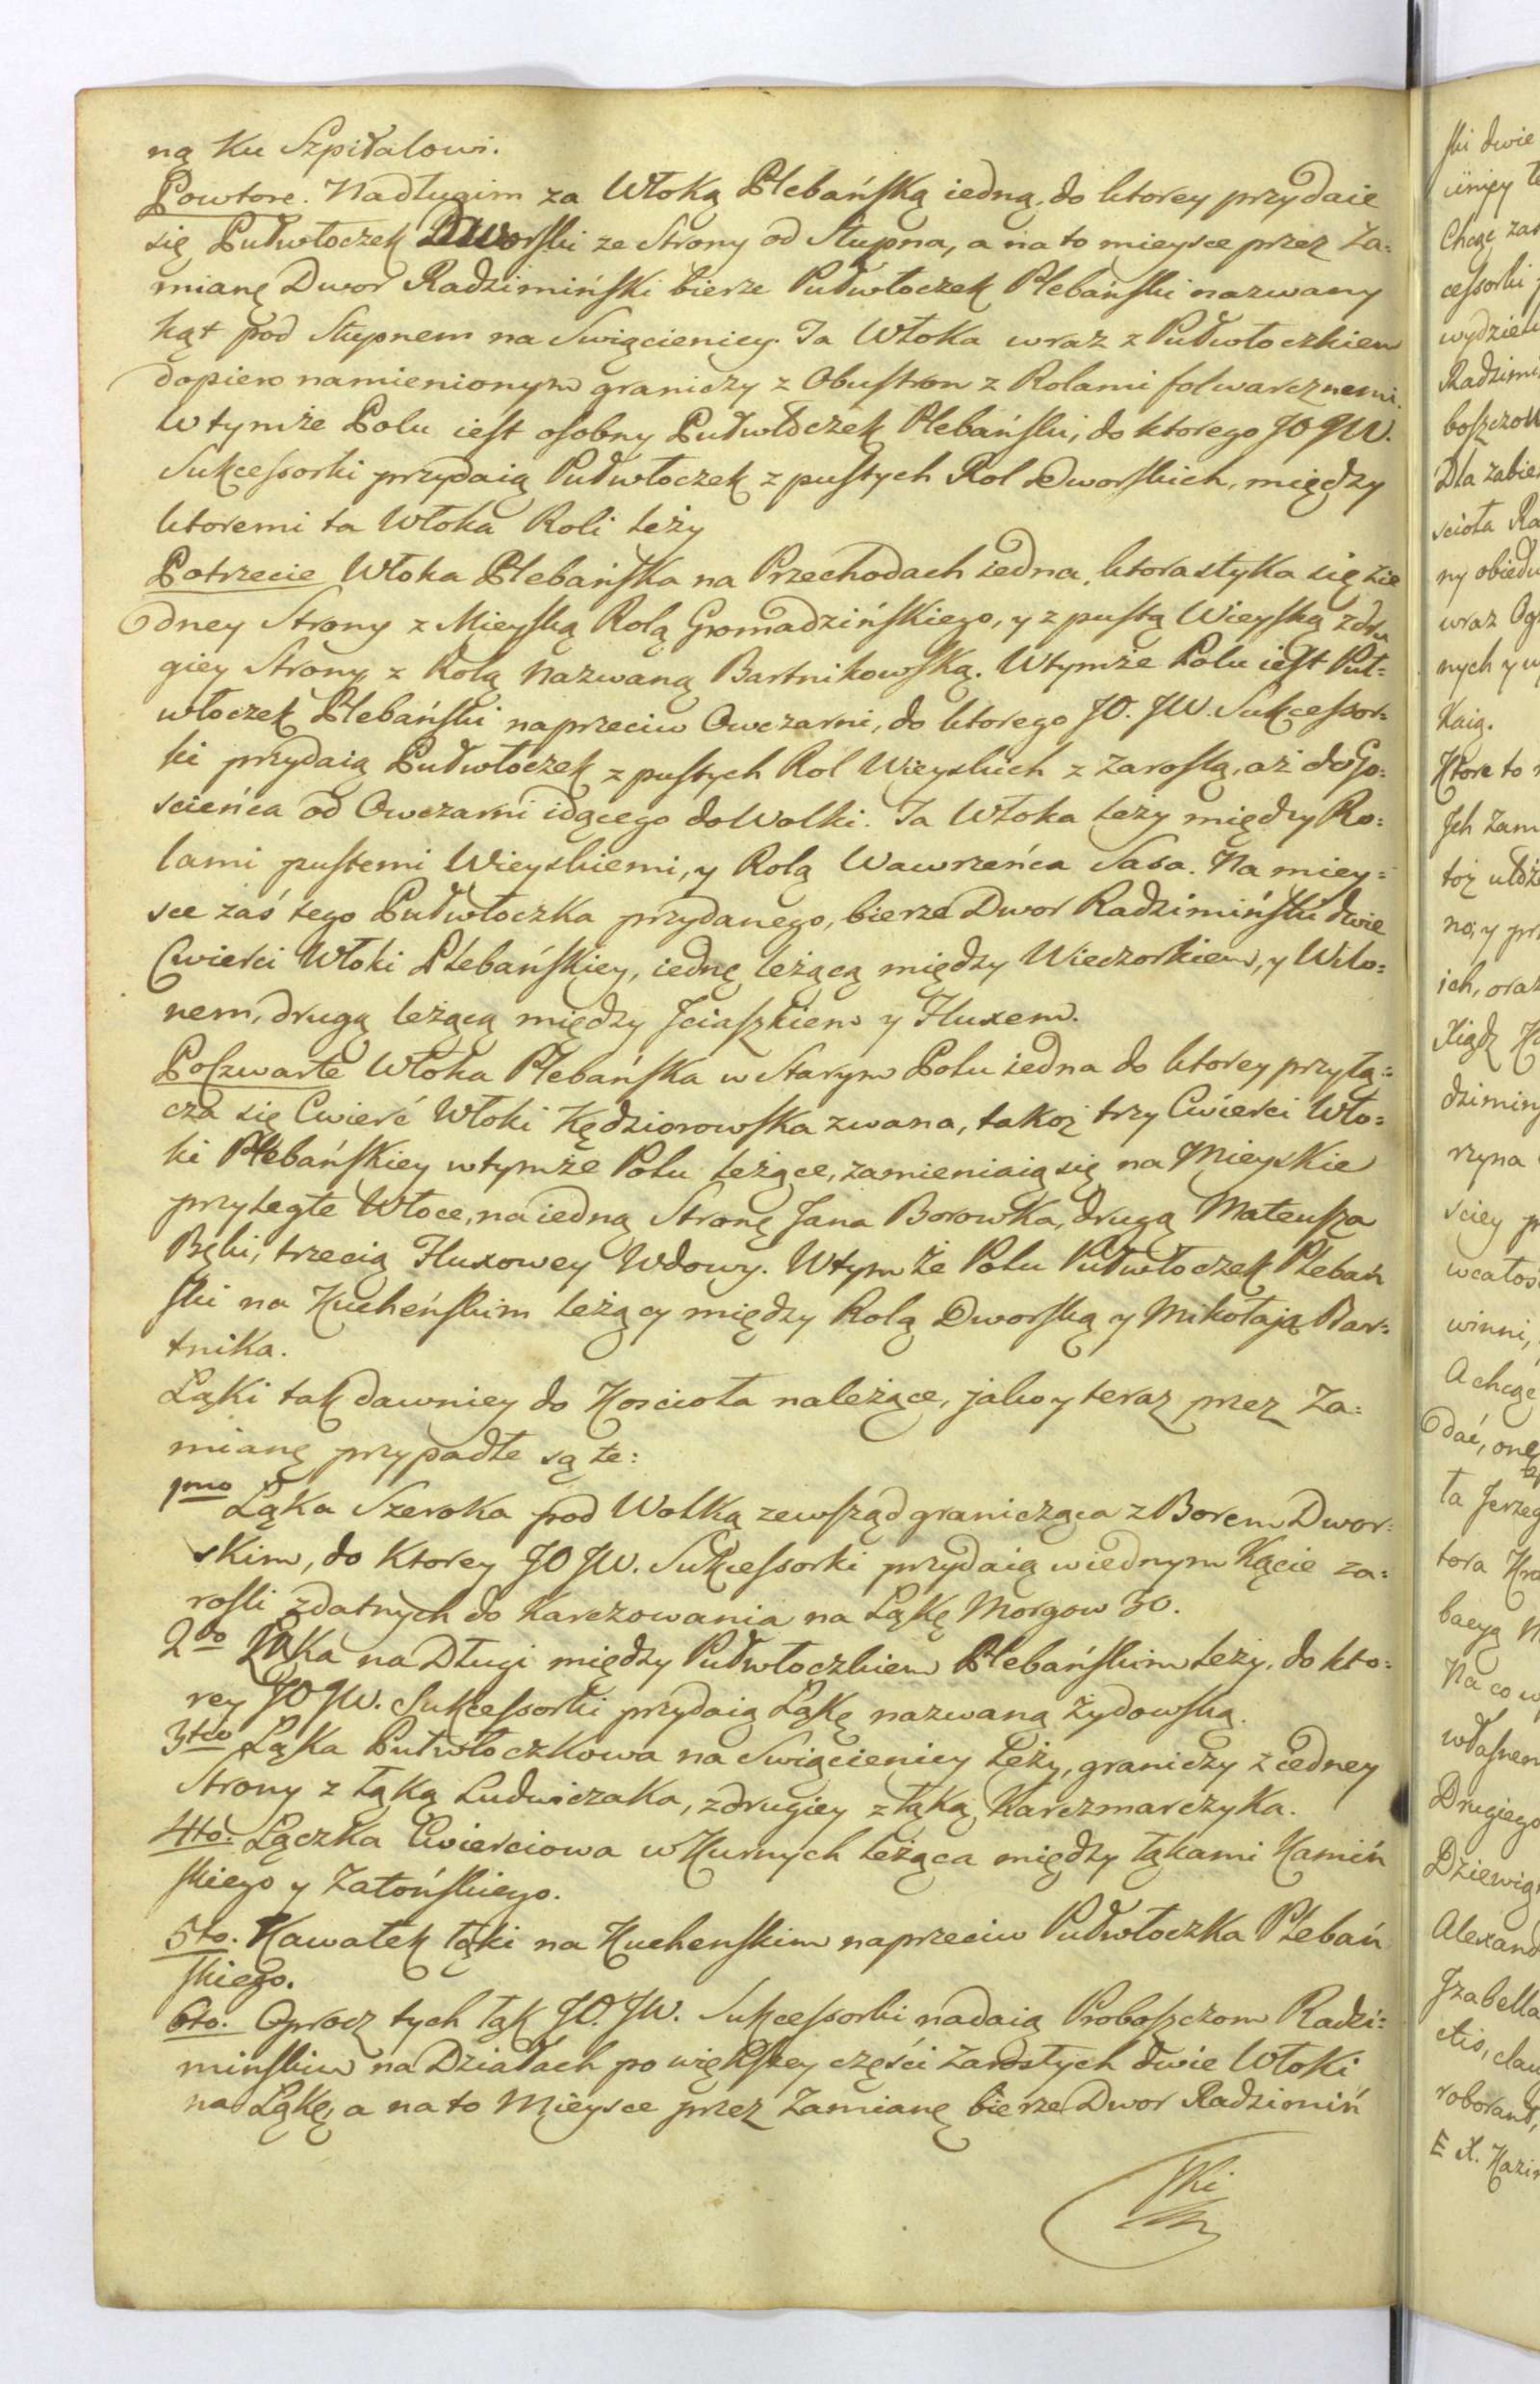 ną Ku Szpitalowi.
Powtore. Nadługim za Włoką Plebańską iedną, do ktorey przydaie
się Pułwłoczek Dworski ze Strony od Słupna, a na to mieysce przez Za=
mianę Dwor Radzimiński bierze Pułwłoczek Plebański nazwany
kąt pod Słupnem na Swięcienicy. Ta Włoka wraz z Pułwłoczkiem
dopiero namienionym graniczy z Obustron z Rolami folwarcznemi.
Wtymże Polu iest osobny Pułwłoczek Plebański, do ktorego JO JW.
Sukcessorki przydaią Pułwłoczek z pustych Rol Dworskich, między
ktoremi ta Włoka Roli leży
Potrzecie Włoka Plebańska na Przechodach iedna, ktora styka się zie
dney Strony z Mieyską Rolą Gromadzińskiego, y z pustą Wieyską zdru
giey Strony z Rolą Nazwaną Bartnikowską. Wtymże Polu iest Puł=
włoczek Plebański naprzeciw Owczarni, do ktorego JO. JW. Sukcessor=
ki przydaią Pułwłoczek z pustych Rol Wieyskich z Zarostą, aż do Go=
scieńca od Owczarni idącego do Wolki. Ta Włoka leży między Ro=
lami pustemi Wieyskiemi, y Rolą Wawrzeńca Sasa. Na miey=
sce zaś tego Pułwłoczka przydanego, bierze Dwor Radzimiński dwie
Cwierci Włoki Plebańskiey, iednę leżącą między Wieczorkiem, y Wilo=
nem, drugą leżącą między Jciaszkiem y Fluxem.
Poczwarte Włoka Plebańska w Starym Polu iedna do ktorey przyłą=
cza się Cwierć Włoki Kędziorowska zwana, takoż trzy Cwierci Wło=
ki Plebańskiey wtymże Polu leżące, zamieniaią się na Mieyskie
przyległe Włoce, na iedną Stronę Jana Borowka, drugą Mateusza
Bęki, trzecią Fluxowey Wdowy. Wtymże Polu Pułwłoczek Plebań
ski na Kucheńskim leżący między Rolą Dworską y Mikołaja Bar=
tnika.
Łąki tak dawniey do Koscioła należące, jako y teraz przez Za=
mianę przypadłe są te:
1mo Łąka Szeroka pod Wolką zewsząd granicząca z Borem Dwor=
skim, do Ktorey JO JW. Sukcessorki przydaią wiednym Kącie za=
rosli zdatnych do karczowania na Łąkę Morgow 30.
2do Łąka na Długi między Pułwłoczkiem Plebańskim leży, do kto=
rey JO JW. Sukcessorki przydaią Łąkę nazwaną Żydowską.
3tio Łąka Pułwłoczkowa na Swięcienicy leży, graniczy z iedney
Strony z łąką Ludwiczaka, z drugiey z łąką Karczmarczyka.
4to. Łączka Cwierciowa w Kurnych leżąca między łąkami Kamiń
skiego y Zatońskiego.
5to. Kawałek łąki na Kuchenskim naprzeciw Pułwłoczka Plebań
skiego.
6to. Oprocz tych łąk JO. JW. Sukcessorki nadaią Proboszczom Radzi=
minskim na Działach po większey części zarosłych dwie Włoki
na Łąkę, a na to Mieysce przez Zamianę bierze Dwor Radzimiń
ski